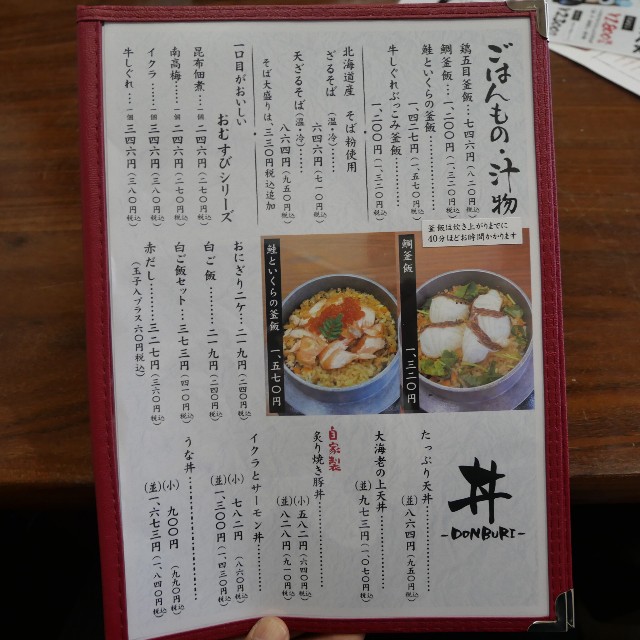 ごはんもの・汁物
鶏五目釜飯…七四六円(八二〇円税込)
鯛釜飯…一、二〇〇円(一、三二〇円税込)
鮭といくらの釜飯………
一、四二七円(一、五七〇円税込)
牛しぐれぶっこみ釜飯………
一、二〇〇円(一、三二〇円税込)
北海道産 そば粉使用
ざるそば(温・冷)……
六四六円(七一〇円税込)
天ざるそば(温・冷)……
八六四円(九五〇円税込)
そば大盛りは、三三〇円税込追加
一口目がおいしい
おむすびシリーズ
昆布佃煮…一個 二四六円(二七〇円税込)
南高梅……一個 二四六円(二七〇円税込)
イクラ……一個 三四六円(三八〇円税込)
牛しぐれ…一個 三四六円(三八〇円税込)
釜飯は炊き上がりまでに
40分ほどお時間かかります
鯛釜飯
一、三二〇円
鮭といくらの釜飯
一、五七〇円
おにぎり二ケ…二一九円(二四〇円税込)
白ご飯………二一九円(二四〇円税込)
白ご飯セット…三七三円(四一〇円税込)
赤だし………三二七円(三六〇円税込)
(玉子入プラス六〇円税込)
丼
-DONBURI-
たっぷり天丼………
(並)八六四円(九五〇円税込)
大海老の上天丼………
(並)九七三円(一、〇七〇円税込)
自家製
炙り焼き豚丼………
(小)五八二円(六四〇円税込)
(並)八二八円(九一〇円税込)
イクラとサーモン丼………
(小)七八二円(八六〇円税込)
(並)一、三〇〇円(一、四三〇円税込)
うな丼………
(小)九〇〇円(九九〇円税込)
(並)一、六七三円(一、八四〇円税込)